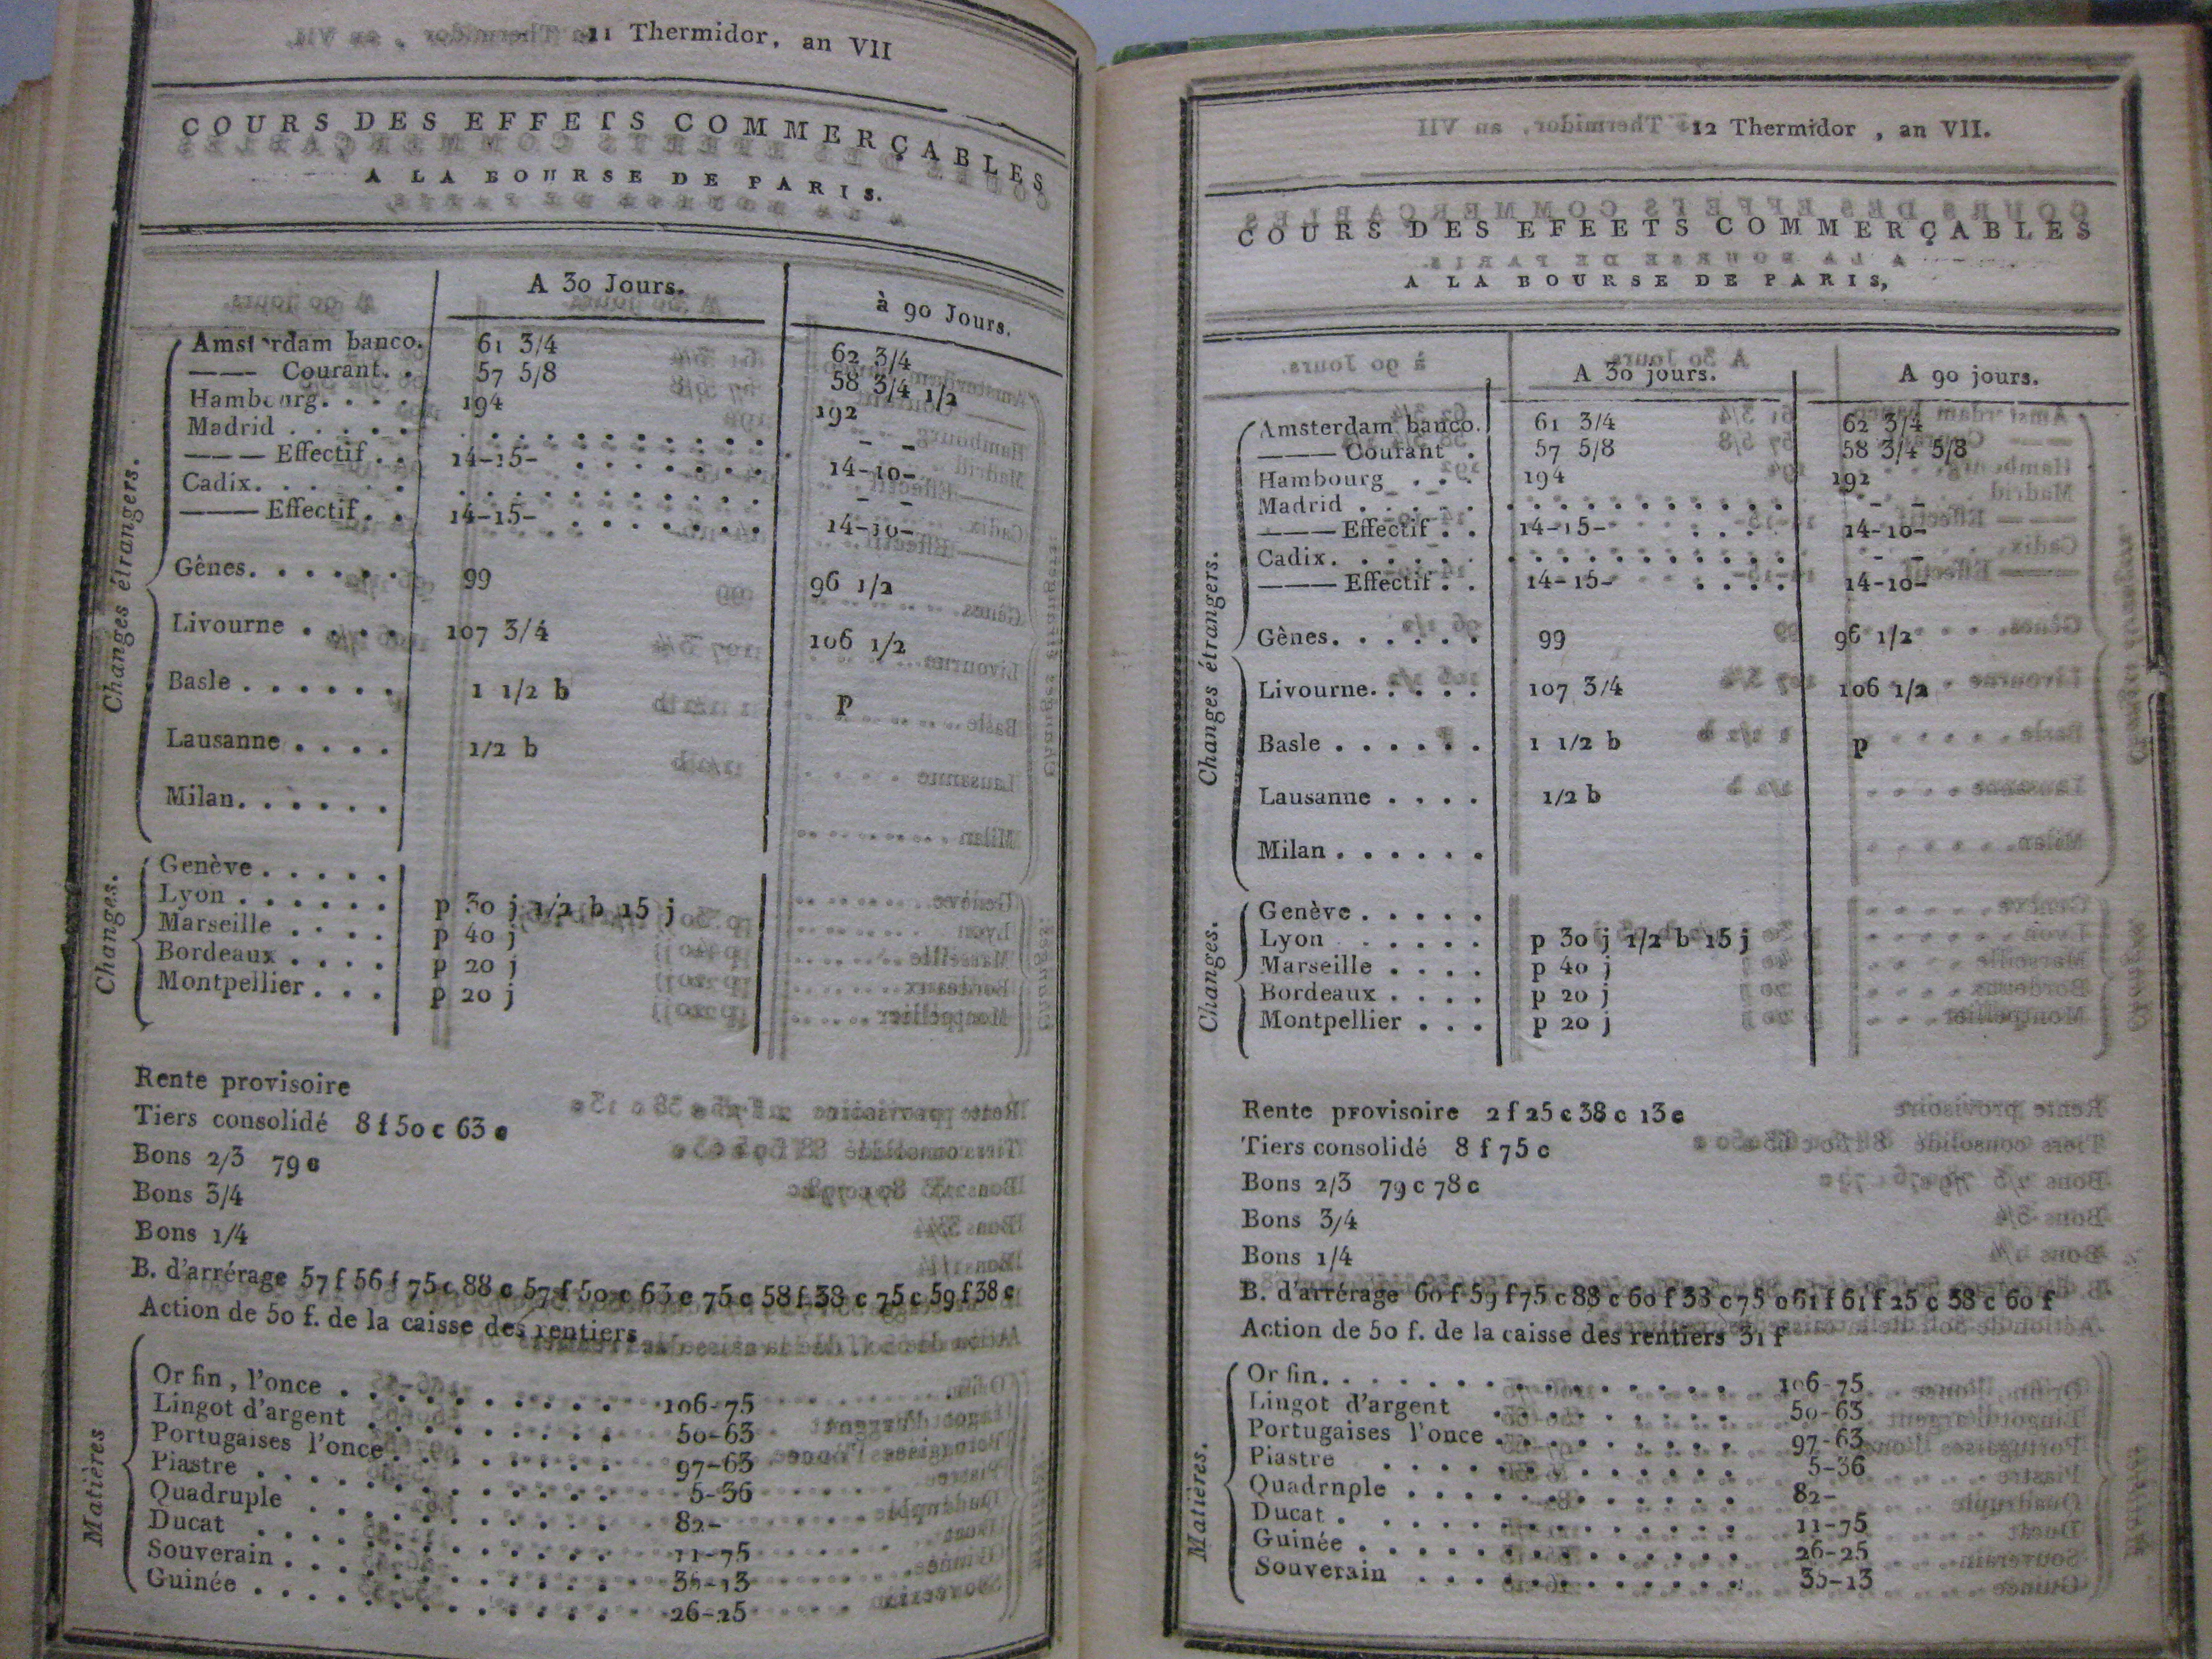 11 Thermidor, an VII
COURS DES EFFETS COMMERÇABLES
A LA BOURSE DE PARIS.
A 30 Jours. à 90 Jours.
Changes étrangers.
Amsterdam banco. 61 3/4 62 3/4
——— Courant. . 57 5/8 58 3/4 1/2
Hambourg. . . . 194 192
Madrid . . . . . - -
——— Effectif . . 14-15- 14-10-
Cadix. . . . . . -
——— Effectif . . 14-15- 14-10-
Gênes. . . . . . 99 96 1/2
Livourne . . . . 107 3/4 106 1/2
Basle . . . . . . 1 1/2 b p
Lausanne . . . . 1/2 b
Milan. . . . . .
Changes.
Genève . . . . .
Lyon . . . . . . p 30 j 1/2 b 15 j
Marseille . . . . p 40 j
Bordeaux . . . . p 20 j
Montpellier . . . p 20 j
Rente provisoire
Tiers consolidé 8 f 50 c 63 c
Bons 2/3 79 c
Bons 3/4
Bons 1/4
B. d'arrérage 57 f 56 f 75 c 88 c 57 f 50 c 63 c 75 c 58 f 38 c 75 c 59 f 38 c
Action de 50 f. de la caisse des rentiers
Matières
Or fin, l'once . . . . . . . . . . 106-75
Lingot d'argent . . . . . . . . . 50-63
Portugaises l'once . . . . . . . . 97-63
Piastre . . . . . . . . . . . . 5-36
Quadruple . . . . . . . . . . . 82-
Ducat . . . . . . . . . . . . 11-75
Souverain . . . . . . . . . . . 35-13
Guinée . . . . . . . . . . . . 26-25
12 Thermidor , an VII.
COURS DES EFEETS COMMERÇABLES
A LA BOURSE DE PARIS,
A 30 jours. A 90 jours.
Changes étrangers.
Amsterdam banco. 61 3/4 62 3/4
——— Courant . 57 5/8 58 3/4 5/8
Hambourg . . . 194 192
Madrid . . . . . - -
——— Effectif . . 14-15- 14-10-
Cadix. . . . . . - -
——— Effectif . . 14-15- 14-10-
Gênes. . . . . . 99 96 1/2
Livourne. . . . . 107 3/4 106 1/2
Basle . . . . . . 1 1/2 b p
Lausanne . . . . 1/2 b
Milan . . . . . .
Changes.
Genève . . . . .
Lyon . . . . . p 30 j 1/2 b 15 j
Marseille . . . . p 40 j
Bordeaux . . . . p 20 j
Montpellier . . . p 20 j
Rente provisoire 2 f 25 c 38 c 13 c
Tiers consolidé 8 f 75 c
Bons 2/3 79 c 78 c
Bons 3/4
Bons 1/4
B. d'arrérage 60 f 59 f 75 c 88 c 60 f 38 c 75 c 61 f 61 f 25 c 38 c 60 f
Action de 50 f. de la caisse des rentiers 31 f
Matières.
Or fin. . . . . . . . . . . . . 106-75
Lingot d'argent . . . . . . . . 50-63
Portugaises l'once . . . . . . . 97-63
Piastre . . . . . . . . . . . 5-36
Quadrnple . . . . . . . . . . 82-
Ducat . . . . . . . . . . . . 11-75
Guinée . . . . . . . . . . . 26-25
Souverain . . . . . . . . . . 35-13